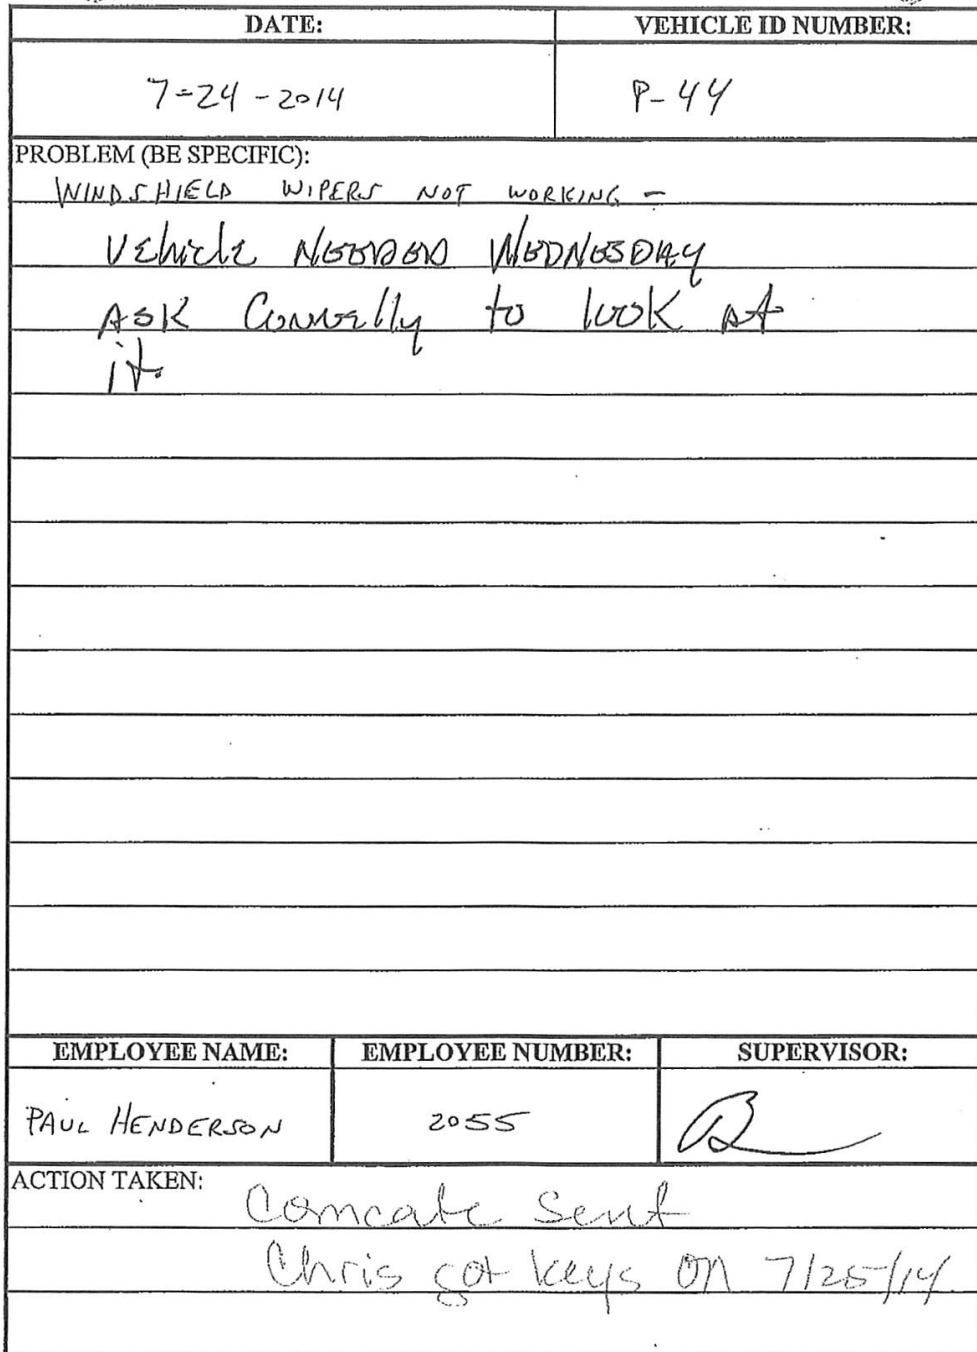 DATE: VEHICLE ID NUMBER:
7-24-2014 P-44
PROBLEM (BE SPECIFIC):
WINDSHIELD WIPERS NOT WORKING -
Vehicle NEEDED WEDNESDAY
ASK Connelly to look at
it.
EMPLOYEE NAME: EMPLOYEE NUMBER: SUPERVISOR:
PAUL HENDERSON 2055
ACTION TAKEN:
Comcate Sent
Chris got keys on 7/25/14